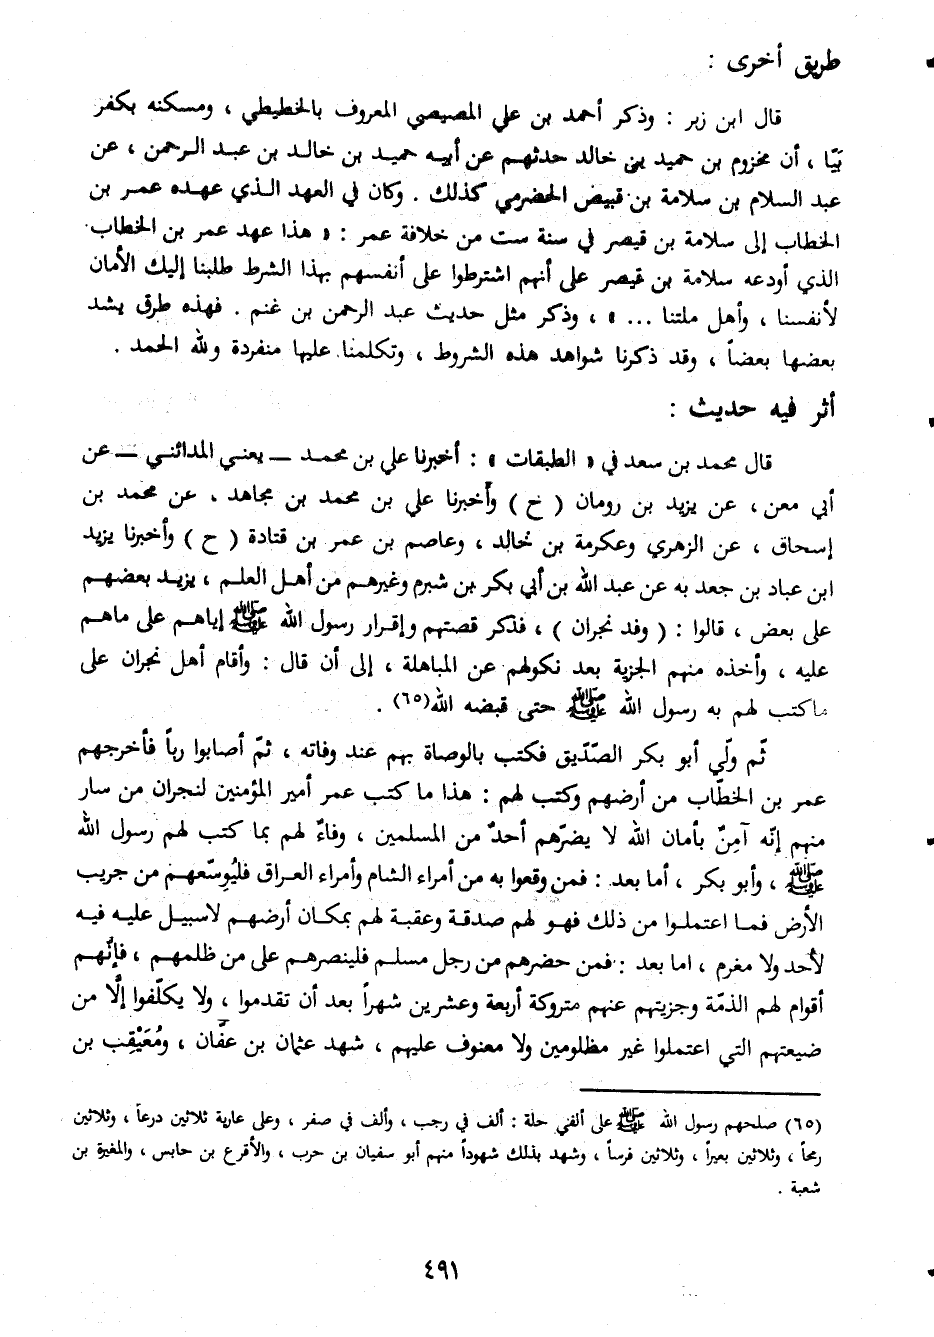 طريق أخرى :
قال ابن زبر : وذكر أحمد بن علي المصيصي المعروف بالخطيطي ، ومسكنه بكفر
بَيّا ، أن مخزوم بن حميد بني خالد حدثهم عن أبيه حميد بن خالد بن عبد الرحمن ، عن
عبد السلام بن سلامة بن قبيض الحضرمي كذلك . وكان في العهد الذي عهده عمر بن
الخطاب إلى سلامة بن قيصر في سنة ست من خلافة عمر : « هذا عهد عمر بن الخطاب
الذي أودعه سلامة بن قيصر على أنهم اشترطوا على أنفسهم بهذا الشرط طلبنا إليك الأمان
لأنفسنا ، وأهل ملتنا ... » ، وذكر مثل حديث عبد الرحمن بن غنم . فهذه طرق يشد
بعضها بعضاً ، وقد ذكرنا شواهد هذه الشروط ، وتكلمنا عليها منفردة ولله الحمد .
أثر فيه حديث :
قال محمد بن سعد في « الطبقات » : أخبرنا علي بن محمد — يعني المدائني — عن
أبي معن ، عن يزيد بن رومان ( خ ) وأخبرنا علي بن محمد بن مجاهد . عن محمد بن
إسحاق ، عن الزهري وعكرمة بن خالد ، وعاصم بن عمر بن قتادة ( ح ) وأخبرنا يزيد
ابن عباد بن جعد به عن عبد الله بن أبي بكر بن شبرم وغيرهم من أهل العلم ، يزيد بعضهم
على بعض ، قالوا : ( وفد نجران ) ، فذكر قصتهم وإقرار رسول الله ﷺ إياهم على ماهم
عليه ، وأخذه منهم الجزية بعد نكولهم عن المباهلة ، إلى أن قال : وأقام أهل نجران على
ماكتب لهم به رسول الله ﷺ حتى قبضه الله(٦٥) .
ثّم ولّي أبو بكر الصّدّيق فكتب بالوصاة بهم عند وفاته ، ثمّ أصابوا رباً فأخرجهم
عمر بن الخطّاب من أرضهم وكتب لهم : هذا ما كتب عمر أمير المؤمنين لنجران من سار
منهم إنّه آمِنٌ بأمان الله لا يضرّهم أحدٌ من المسلمين ، وفاءٌ لهم بما كتب لهم رسول الله
ﷺ ، وأبو بكر ، أما بعد : فمن وقعوا به من أمراء الشام وأمراء العراق فليُوسّعهم من جريب
الأرض فما اعتملوا من ذلك فهو لهم صدقة وعقبة لهم بمكان أرضهم لاسبيل عليه فيه
لأحد ولا مغرم ، اما بعد : فمن حضرهم من رجل مسلم فلينصرهم على من ظلمهم ، فإنّهم
أقوام لهم الذمّة وجزيتهم عنهم متروكة أربعة وعشرين شهراً بعد أن تقدموا ، ولا يكلّفوا إلّا من
ضيعتهم التي اعتملوا غير مظلومين ولا معنوف عليهم ، شهد عثمان بن عفّان ، ومُعَيْقِب بن
(٦٥) صلحهم رسول الله ﷺ على ألفي حلة : ألف في رجب ، وألف في صفر ، وعلى عارية ثلاثين درعاً ، وثلاثين
رمحاً ، وثلاثين بعيراً ، وثلاثين فرساً ، وشهد بذلك شهوداً منهم أبو سفيان بن حرب ، والأقرع بن حابس ، والمغيرة بن
شعبة .
٤٩١